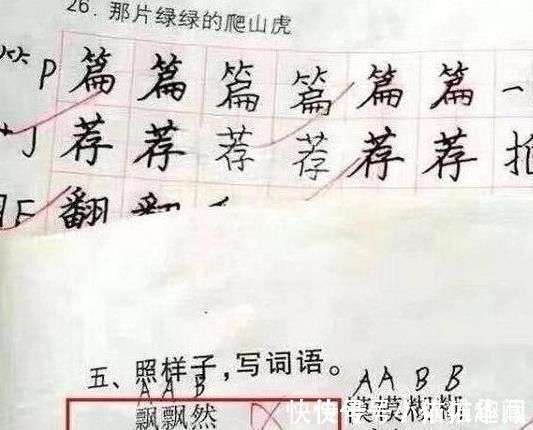 26. 那片绿绿的爬山虎
P 篇 篇 篇 篇 篇 篇 一
荐 荐 荐 荐 荐 荐 推
翻 翻
五、照样子,写词语。
A A B A A B B
飘飘然 模模糊糊